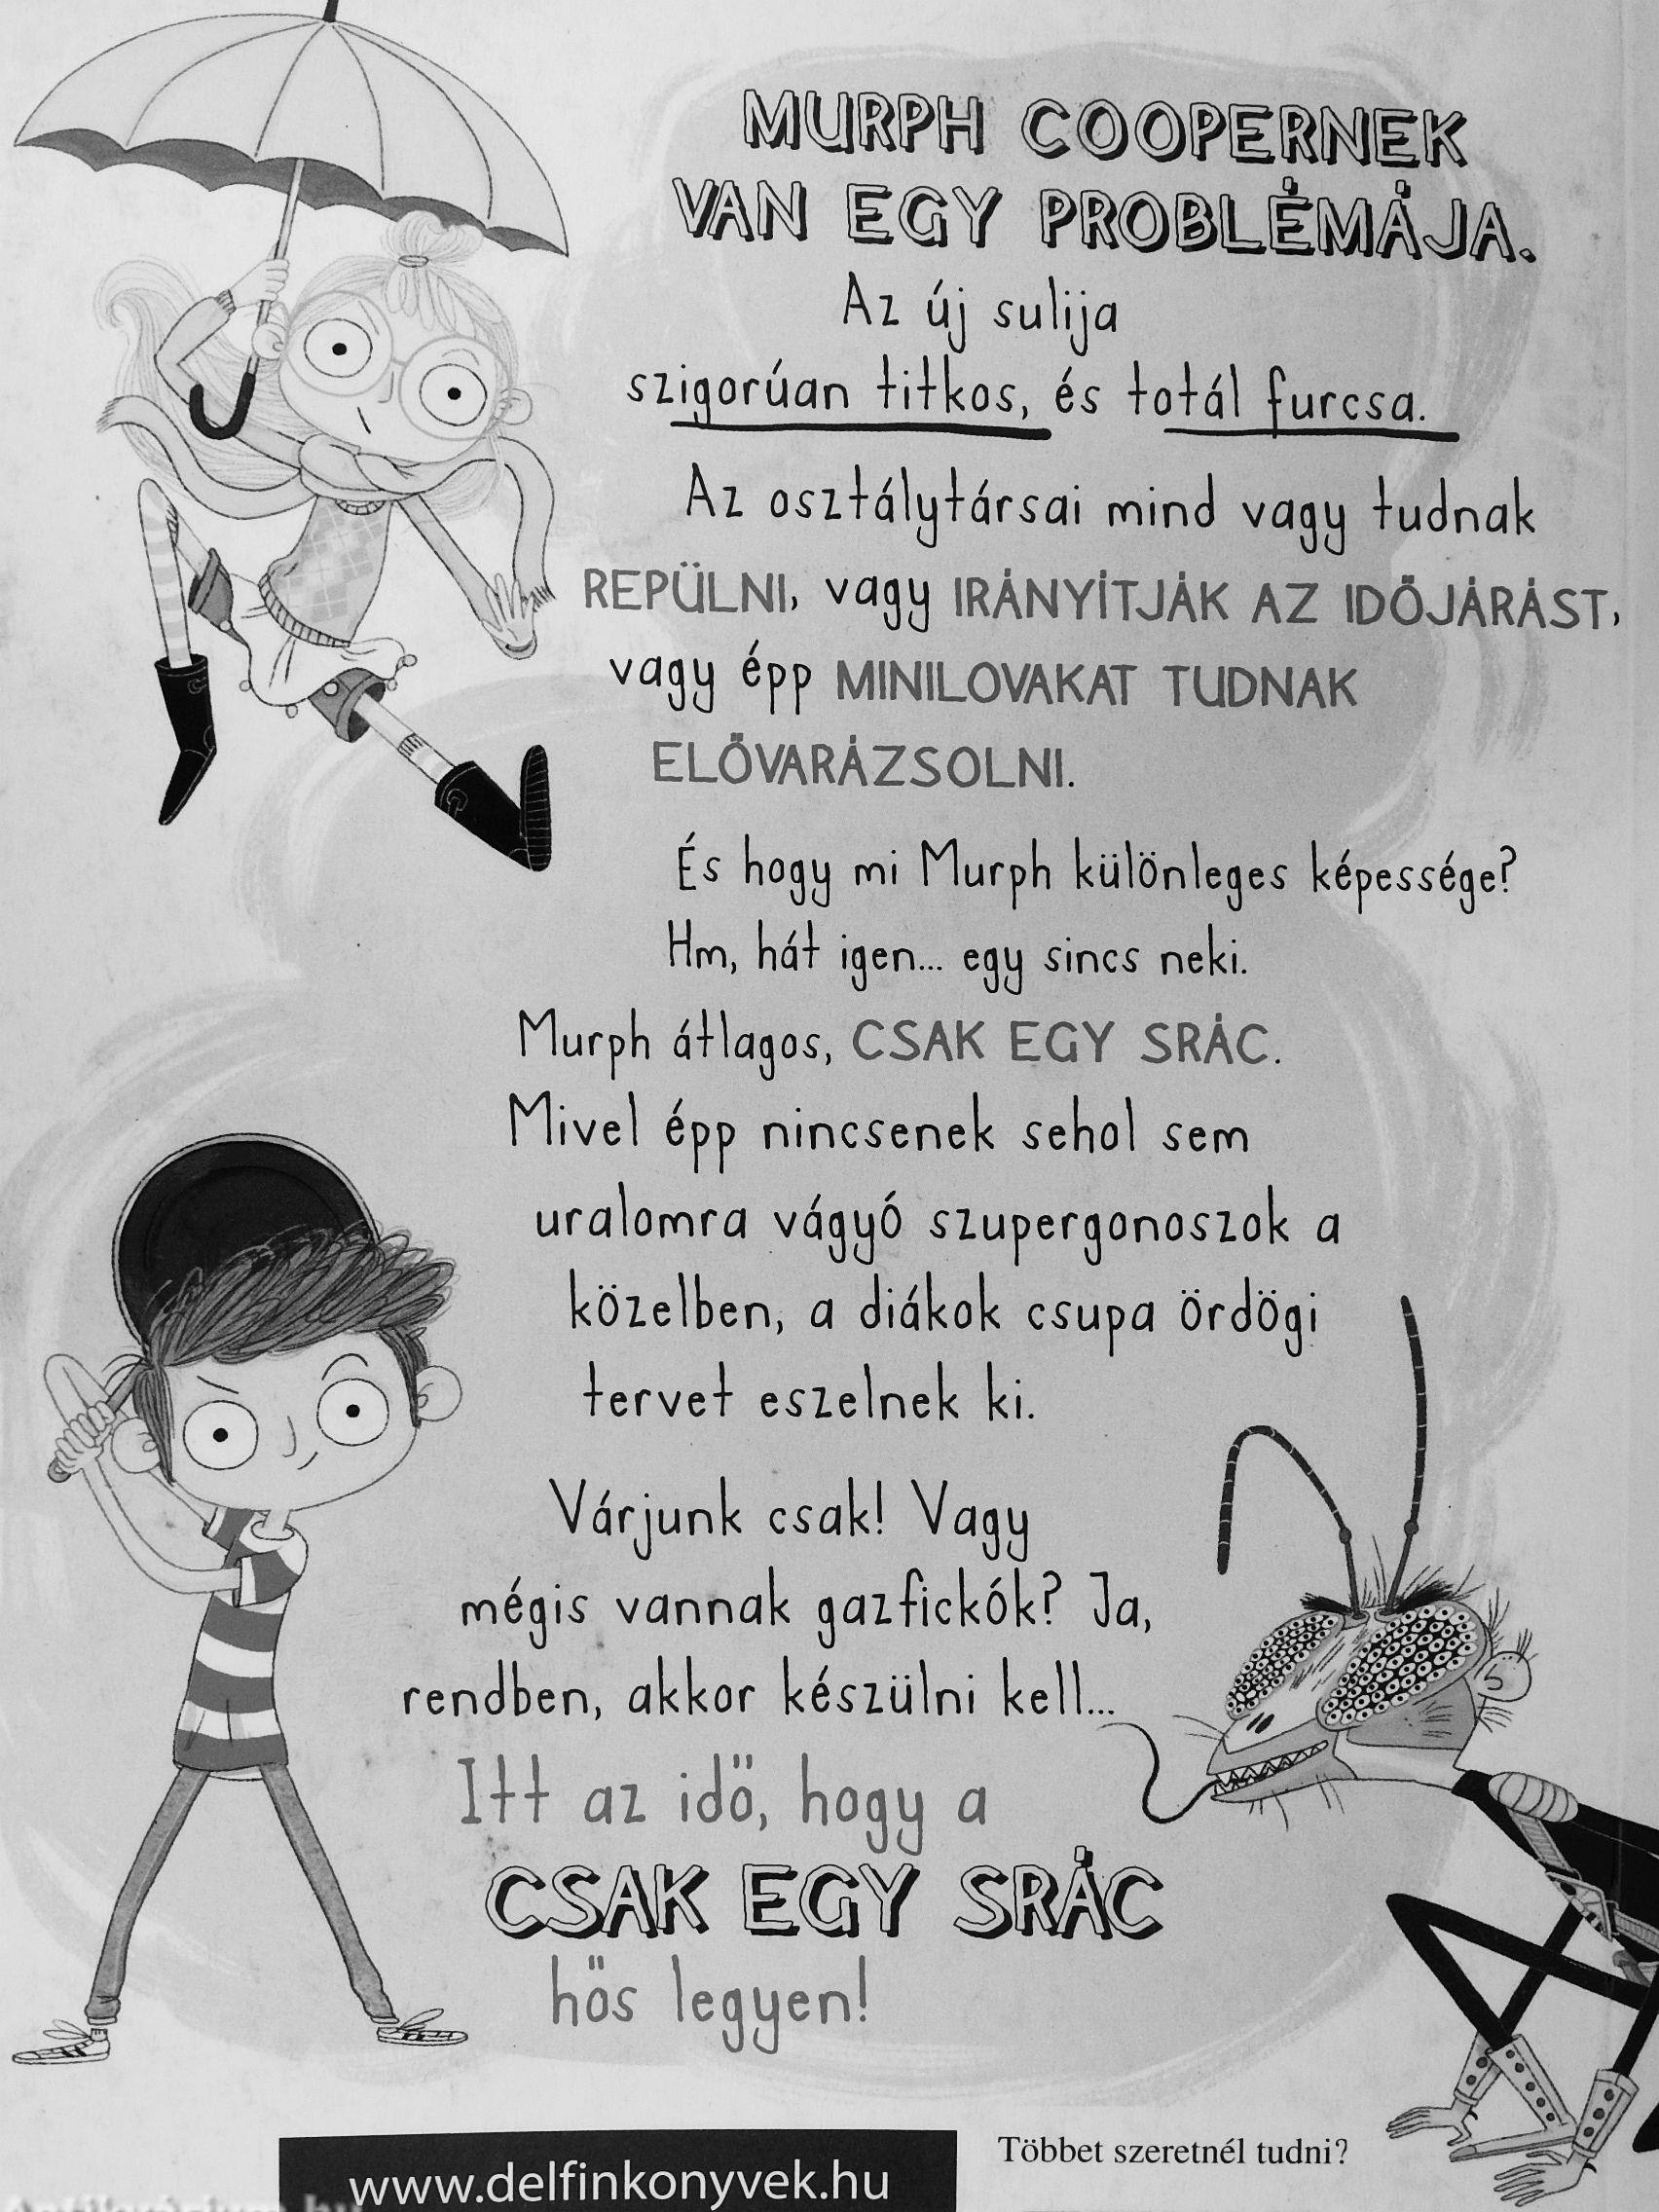 MURPH COOPERNEK
VAN EGY PROBLÉMÁJA.
Az új sulija
szigorúan titkos, és totál furcsa.
Az osztálytársai mind vagy tudnak
REPÜLNI, vagy IRÁNYÍTJÁK AZ IDŐJÁRÁST,
vagy épp MINILOVAKAT TUDNAK
ELŐVARÁZSOLNI.
És hogy mi Murph különleges képessége?
Hm, hát igen... egy sincs neki.
Murph átlagos, CSAK EGY SRÁC.
Mivel épp nincsenek sehol sem
uralomra vágyó szupergonoszok a
közelben, a diákok csupa ördögi
tervet eszelnek ki.
Várjunk csak! Vagy
mégis vannak gazfickók? Ja,
rendben, akkor készülni kell...
Itt az idő, hogy a
CSAK EGY SRÁC
hős legyen!
Többet szeretnél tudni?
www.delfinkonyvek.hu